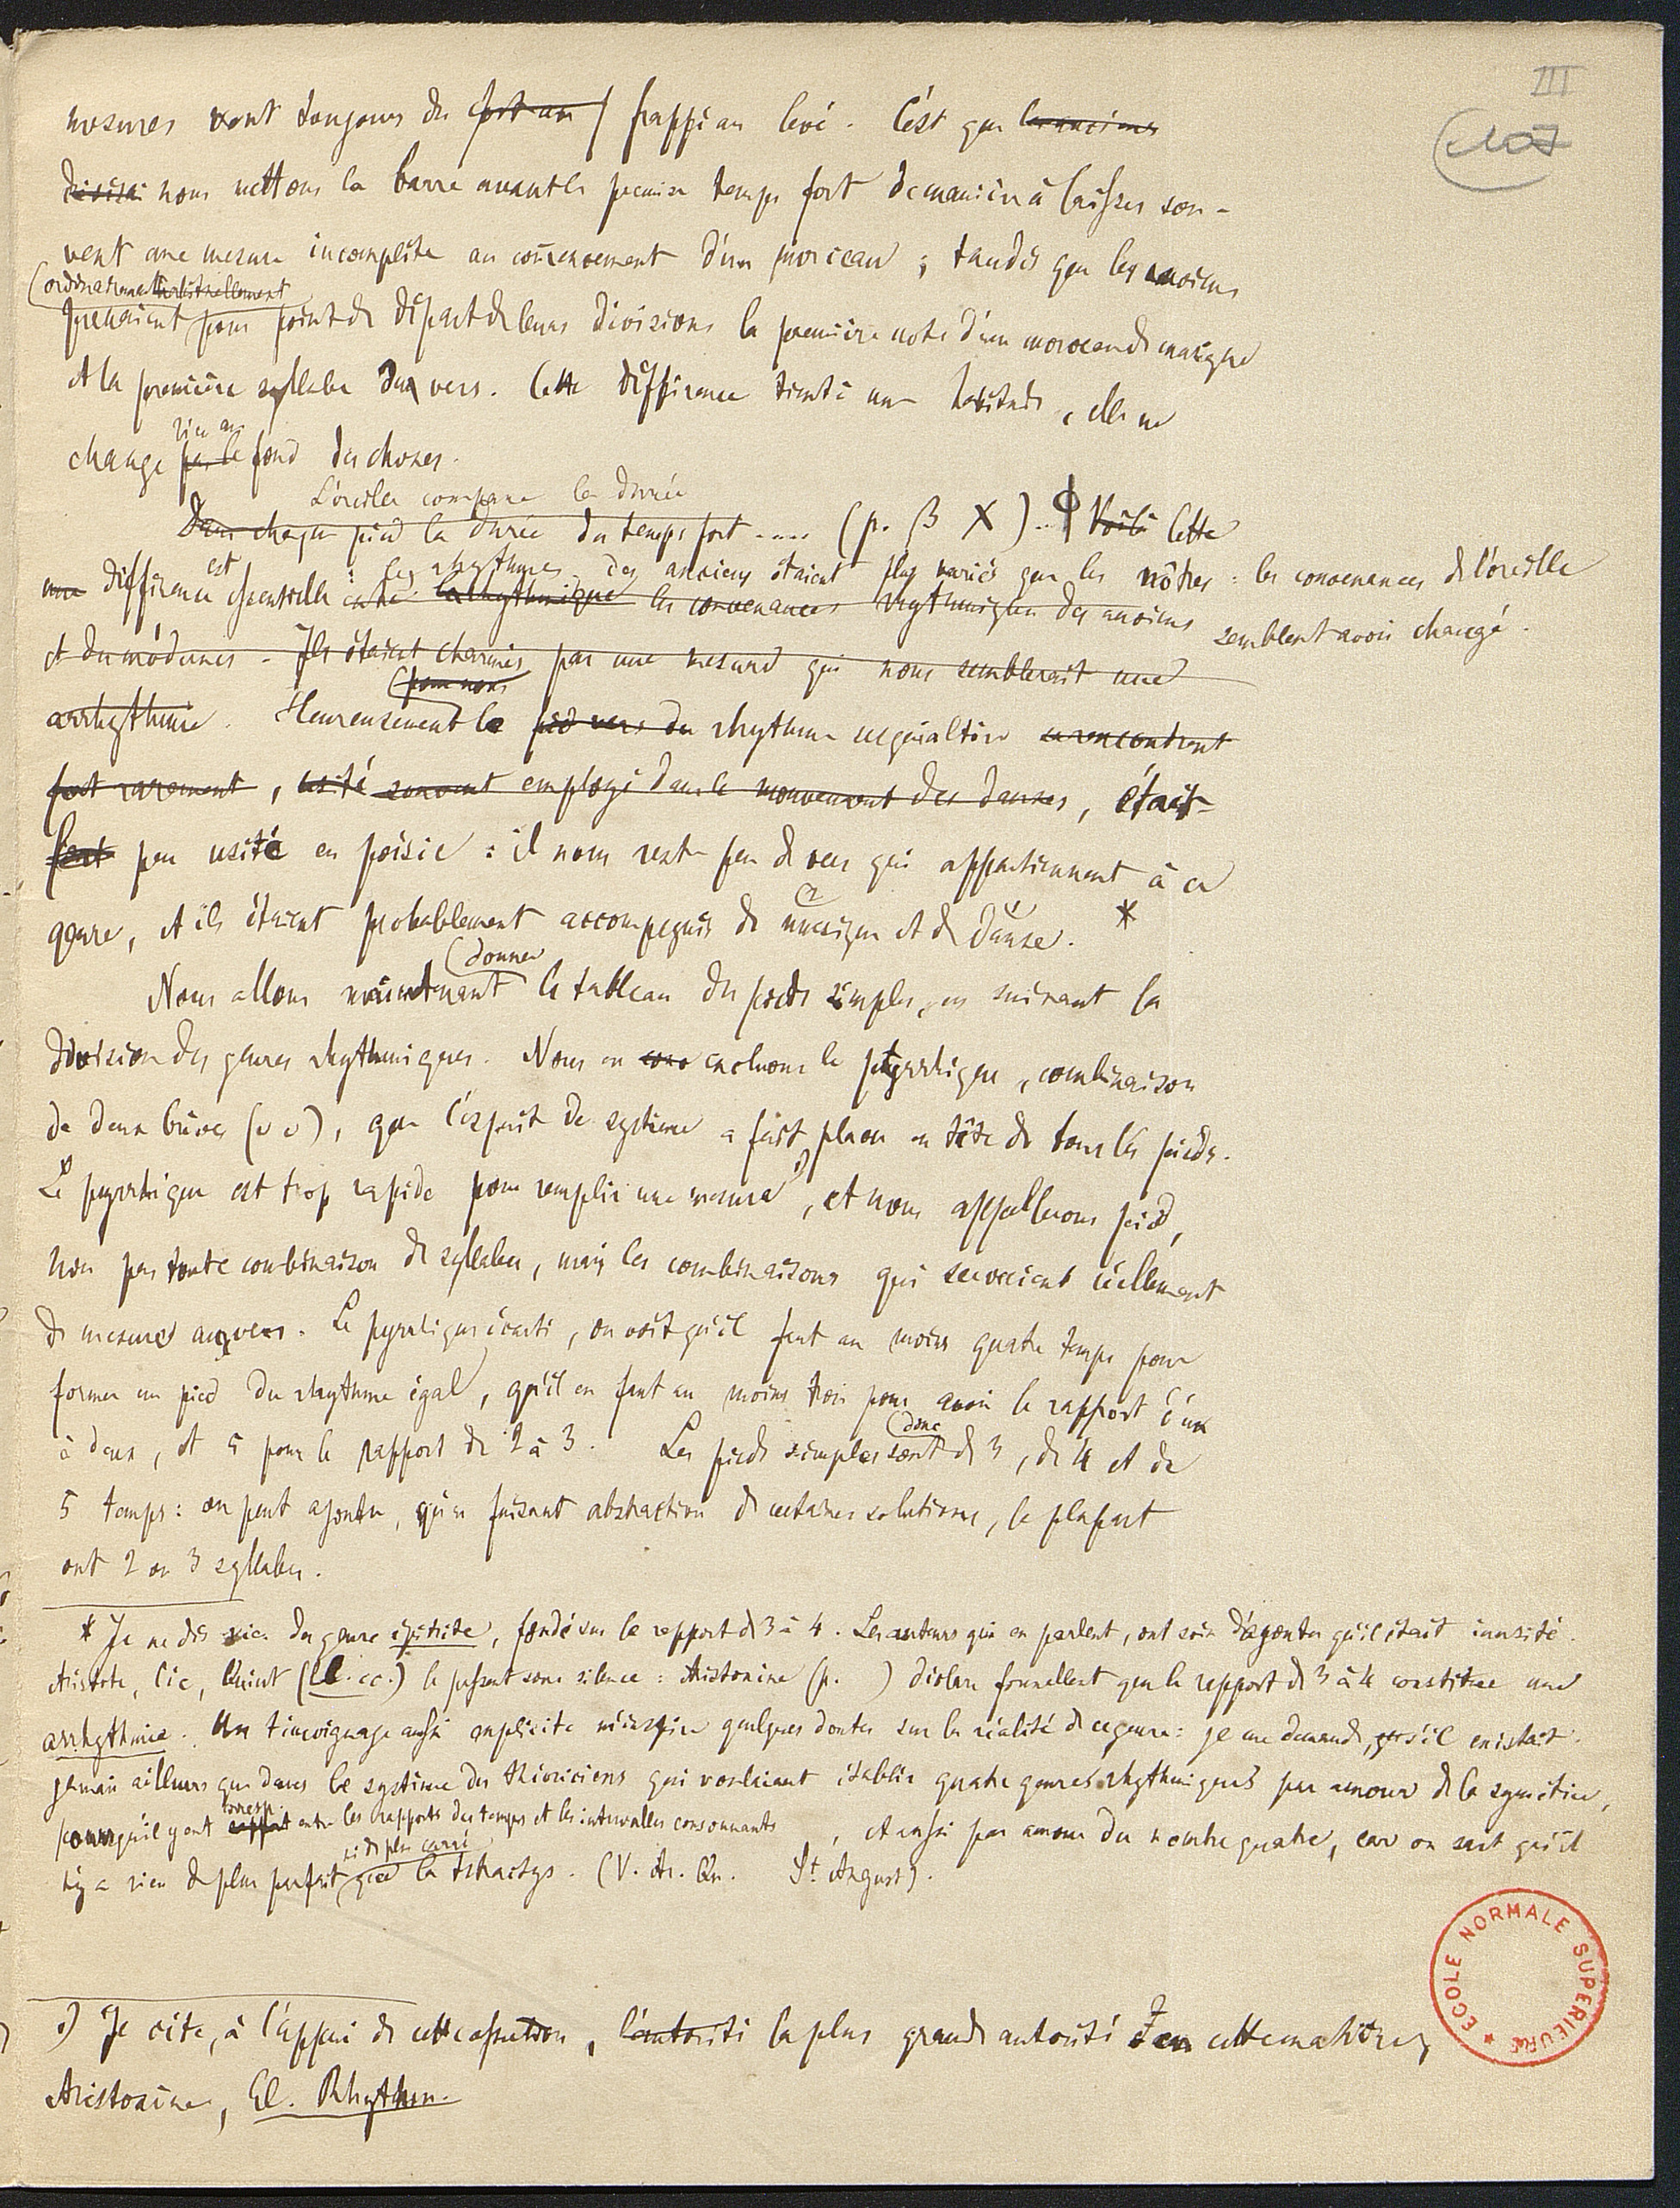 III
mesures vont toujours du fort au frappé au levé. C'est que les anciens
divisai nous mettons la barre avant le premier temps fort de manière à laisser sou-
vent une mesure incomplète au commencement d'un morceau ; tandis que les anciens
(ordinairement habituellement
prenaient pour point de départ de leurs divisions la première note d'un morceau de musique
et la première syllabe d'un vers. Cette différence tient à une habitude, elle ne
rien au
change pas le fond des choses.
L'oreille compare la durée
Dans chaque pied la durée du temps fort .... (p. β X)... ϕ Voilà Cette
est : les rhythmes des anciens étaient plus variés que les nôtres : les convenances de l'oreille
une différence essentielle entre la rhythmique les convenances rhythmiques des anciens semblent avoir changé.
et des modernes. Ils étaient charmés par une mesure qui nous semblerait une
(pour nous
arrhythmie. Heureusement le pied vers du rhythme sesquialtère se rencontrent
fort rarement, usité souvent employé dans le mouvement des danses, était
peu usité en poésie : il nous reste peu de vers qui appartiennent à ce
genre, et ils étaient probablement accompagnés de musique et de danse. *
(donner
Nous allons maintenant le tableau des pieds simples, en suivant la
division des genres rhythmiques. Nous en excluons le pyrrhique, combinaison
de deux brèves (υ υ), que l'esprit de système a fait placer en tête de tous les pieds.
Le pyrrhique est trop rapide pour remplir une mesure, et nous appellerons pied,
non pas toute combinaison de syllabes, mais les combinaisons qui servaient réellement
de mesures aux vers. Le pyrrhique écarté, on voit qu'il faut au moins quatre temps pour
former un pied du rhythme égal, qu'il en faut au moins trois pour avoir le rapport d'un
(donc
à deux, et 5 pour le rapport de 2 à 3. Les pieds simples sont de 3, de 4 et de
5 temps : on peut ajouter, qu'en faisant abstraction de certaines solutions, la plupart
ont 2 ou 3 syllabes.
* Je ne dis rien du genre épitrite, fondé sur le rapport de 3 à 4. Les auteurs qui en parlent, ont soin d'ajouter qu'il était inusité.
Aristote, Cic, Quint (ll. cc.) le passent sous silence : Aristoxène (p. ) déclare formellement que le rapport de 3 à 4 constitue une
arrhythmie. Un témoignage aussi explicite m'inspire quelques doutes sur la réalité de ce genre : je me demande, s'il existait
jamais ailleurs que dans le système des théoriciens qui voulaient établir quatre genres rhythmiques par amour de la symétrie,
corresp.
pour qu'il y eut rapport entre les rapports des temps et les intervalles consonnants , et aussi par amour du nombre quatre, car on sait qu'il
ni de plus carré
n'y a rien de plus parfait que la tétractys. (V. Ar. Qu. St August).
) Je cite, à l'appui de cette assertion, l'autorité la plus grande autorité en cette matière,
Aristoxène, El. Rhythm.
ECOLE NORMALE SUPERIEURE